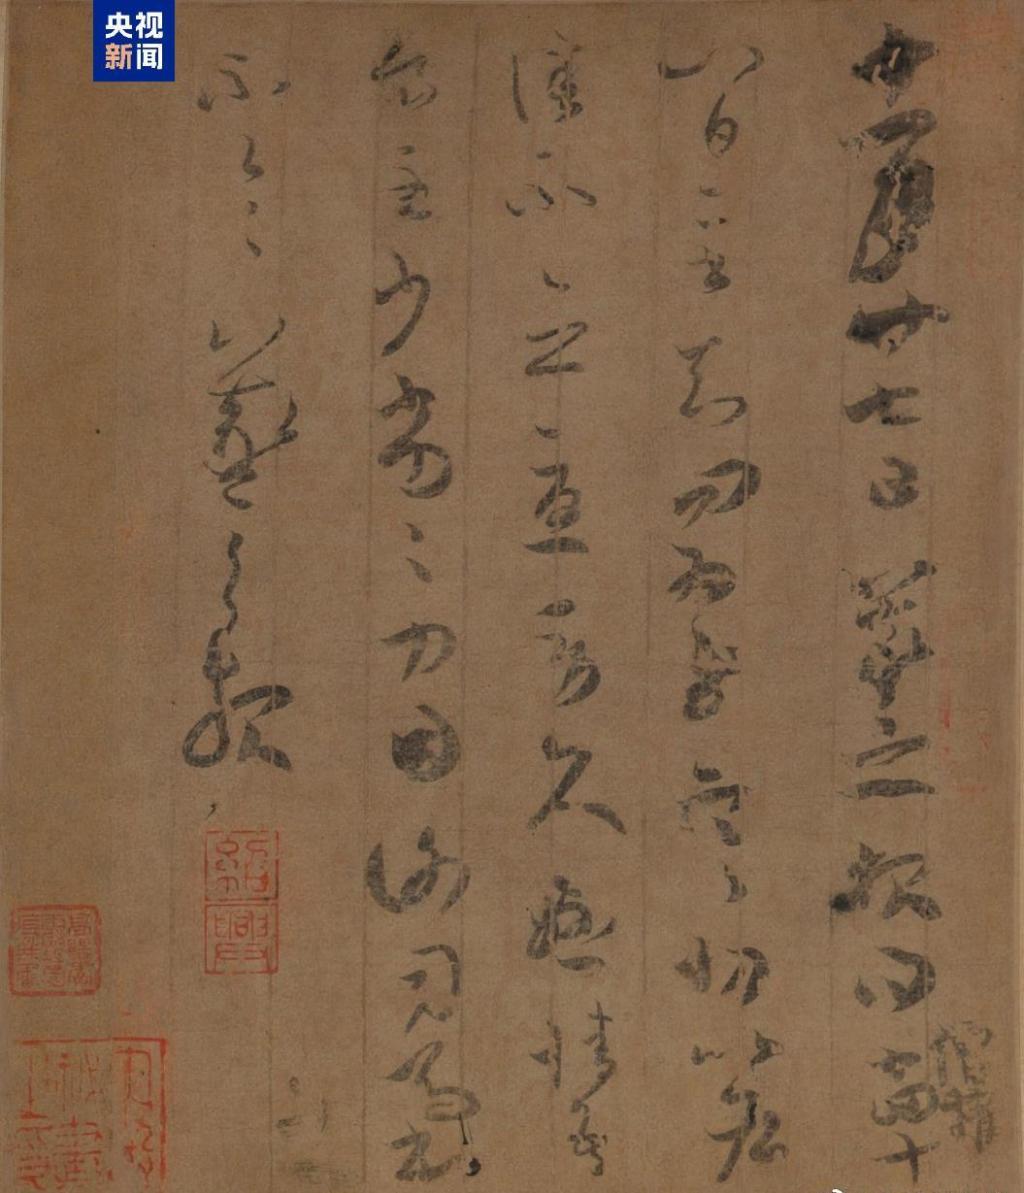 央视
新闻
十一月廿七日羲之報得十四十
八日二書知問為慰寒切比各
佳不念憂勞久懸情吾
食至少劣劣力因謝司馬書
不一一羲之報
僧權
紹興